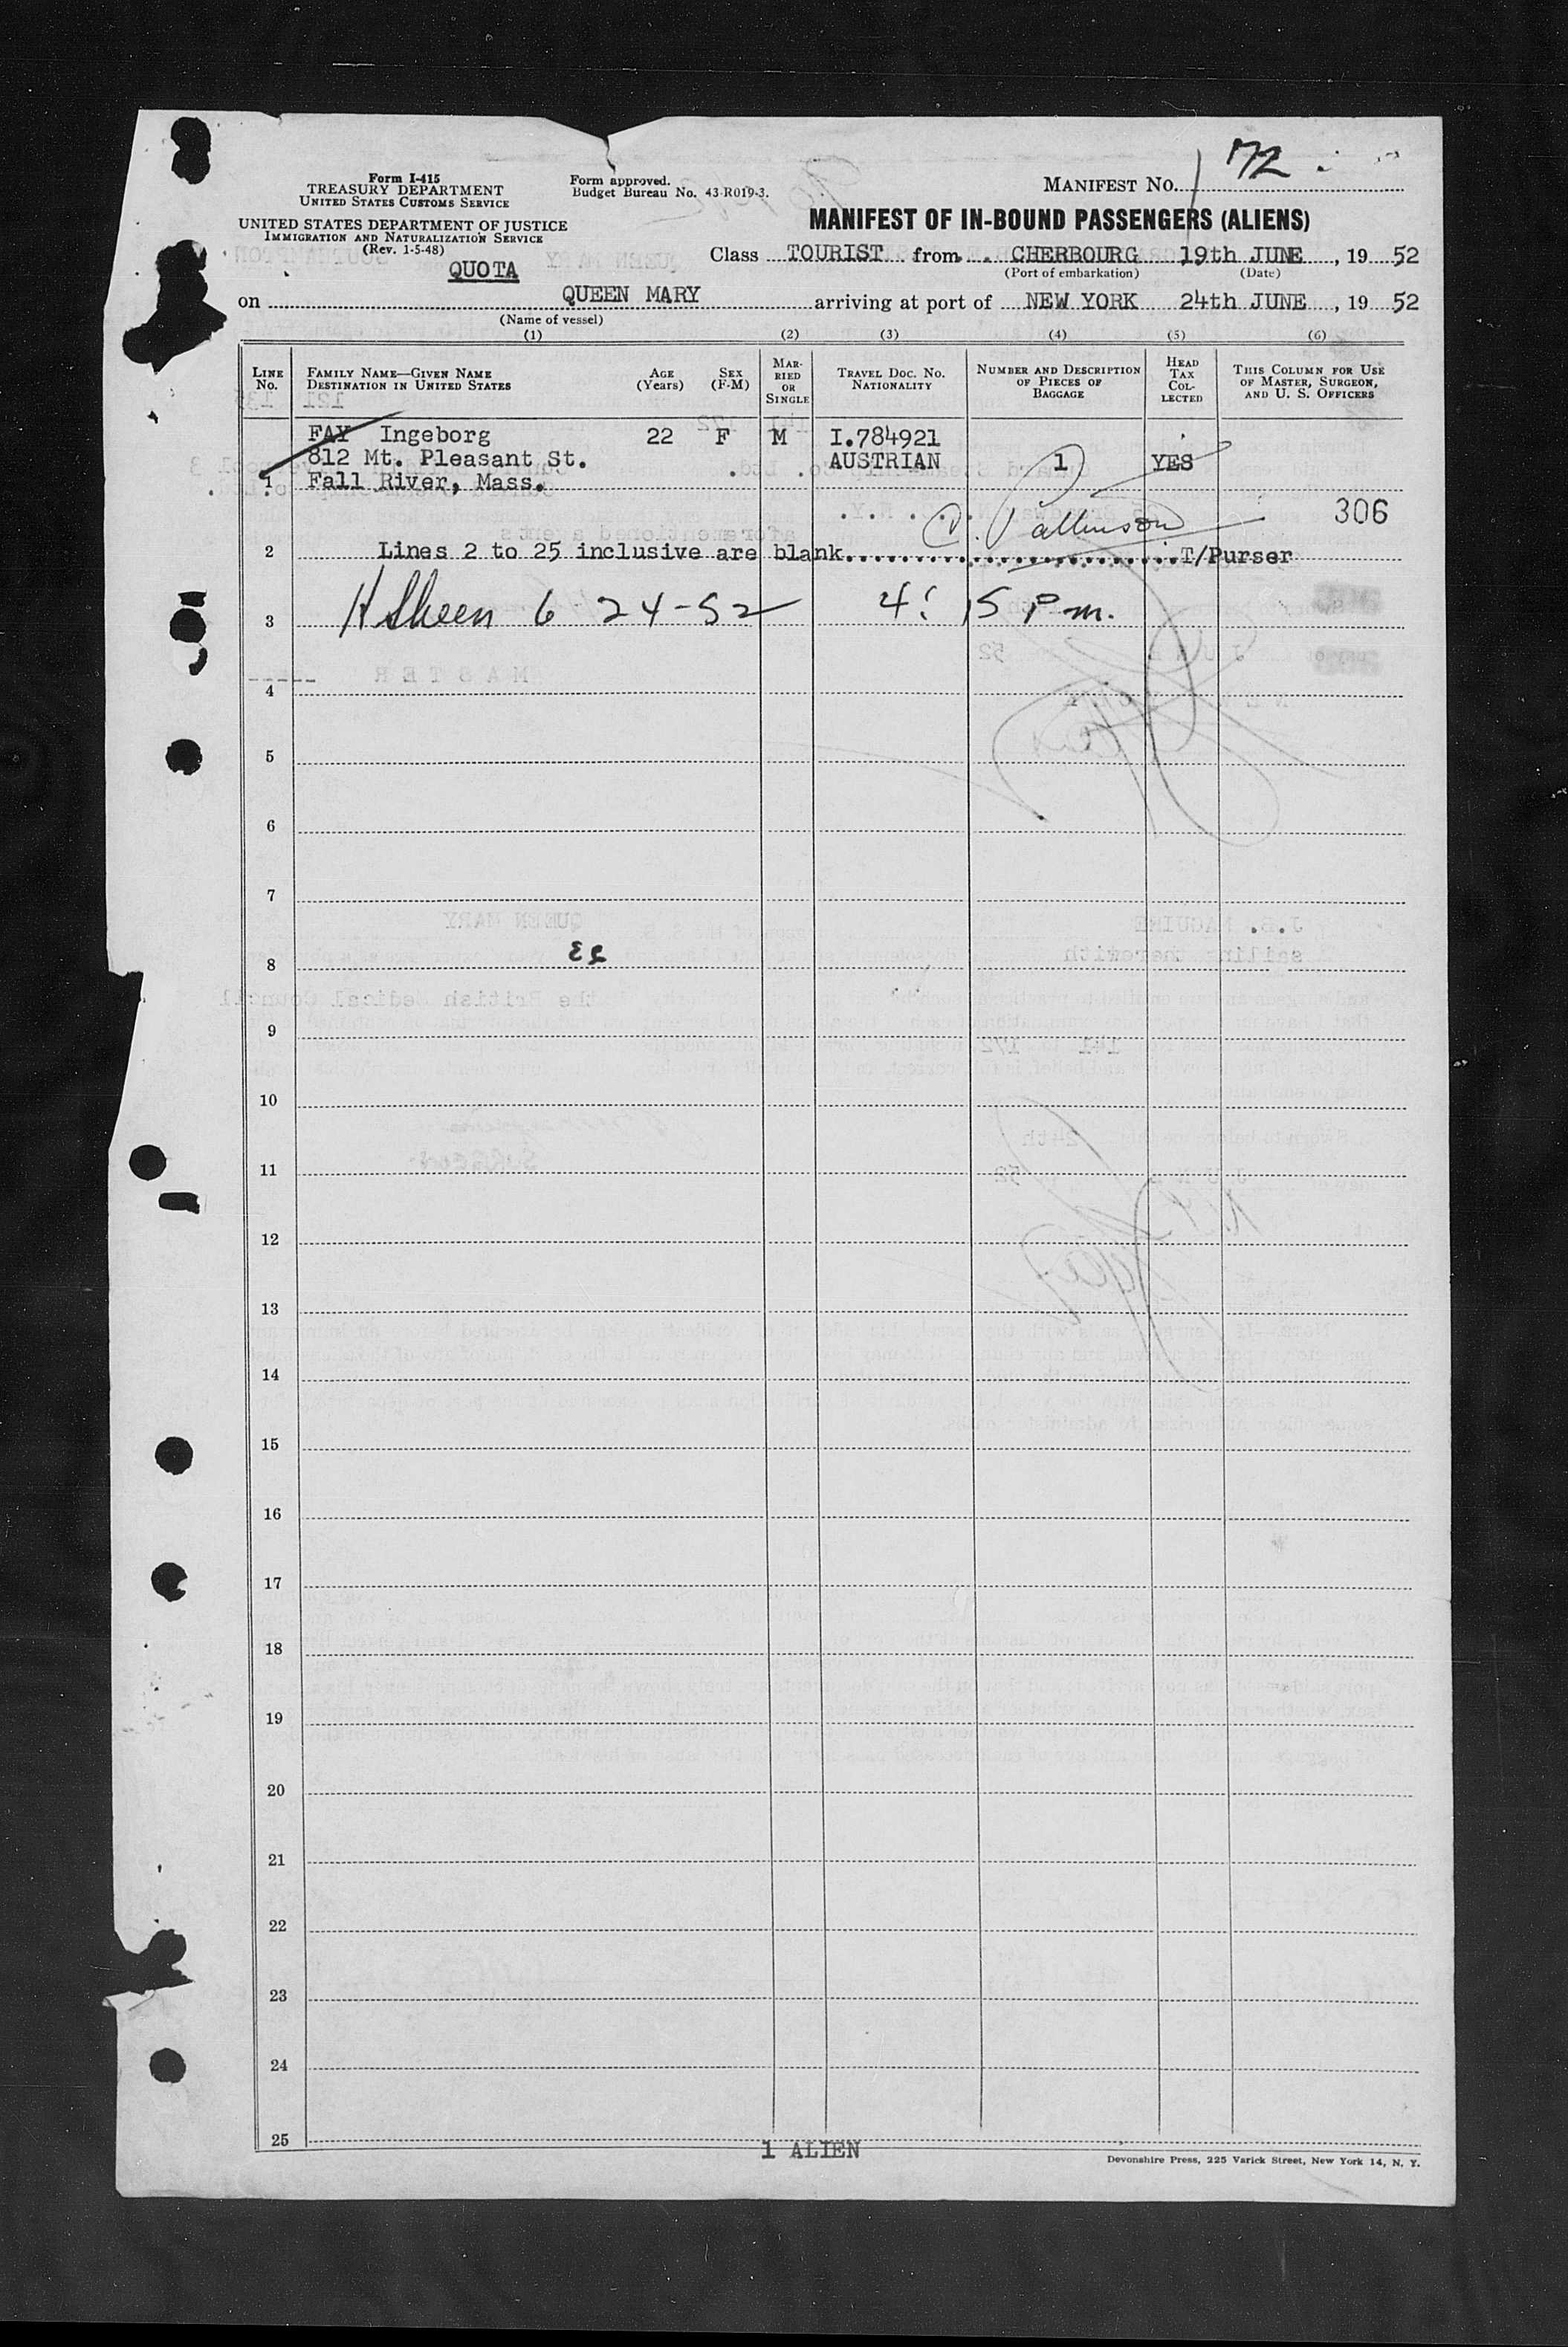 172
Form I-415
TREASURY DEPARTMENT
UNITED STATES CUSTOMS SERVICE
Form approved.
Budget Bureau No. 43-R019-3.
MANIFEST NO.
UNITED STATES DEPARTMENT OF JUSTICE
IMMIGRATION AND NATURALIZATION SERVICE
(Rev. 1-5-48)
MANIFEST OF IN-BOUND PASSENGERS (ALIENS)
QUOTA
Class TOURIST from CHERBOURG 19th JUNE, 1952
(Port of embarkation) (Date)
on QUEEN MARY arriving at port of NEW YORK 24th JUNE, 1952
(Name of vessel)
(1) (2) (3) (4) (5) (6)
LINE No. FAMILY NAME—GIVEN NAME DESTINATION IN UNITED STATES AGE (Years) SEX (F-M) MARRIED OR SINGLE TRAVEL DOC. NO. NATIONALITY NUMBER AND DESCRIPTION OF PIECES OF BAGGAGE HEAD TAX COLLECTED THIS COLUMN FOR USE OF MASTER, SURGEON, AND U. S. OFFICERS
FAY Ingeborg 22 F M I.784921
812 Mt. Pleasant St. AUSTRIAN 1 YES
1 Fall River, Mass.
306
2 Lines 2 to 25 inclusive are blank T/Purser
3 6 24-52 4:15 Pm.
4
5
6
7
8
9
10
11
12
13
14
15
16
17
18
19
20
21
22
23
24
25
1 ALIEN
Devonshire Press, 225 Varick Street, New York 14, N. Y.